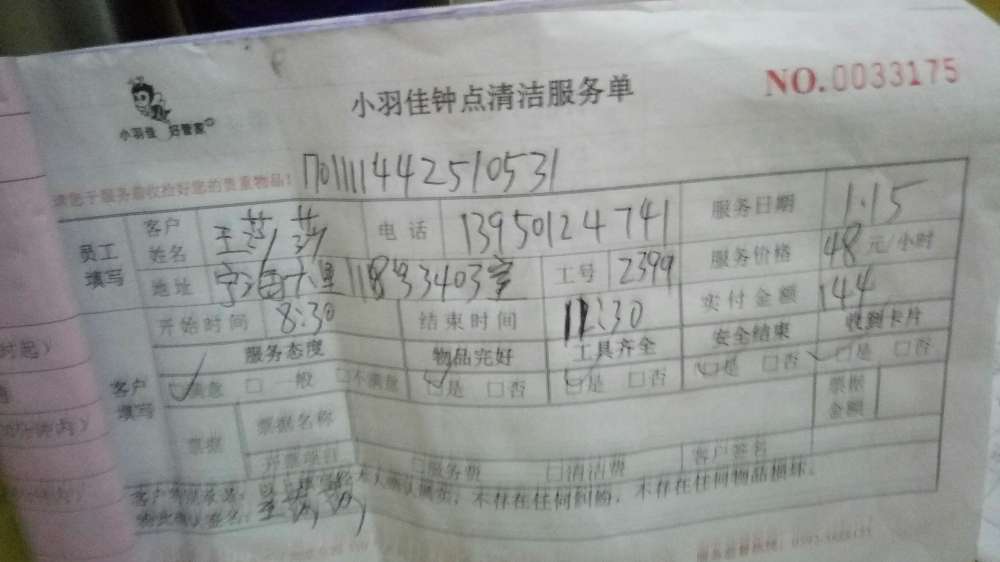 小羽佳 好管家
小羽佳钟点清洁服务单
NO.0033175
请您于服务前收检好您的贵重物品!
1701111442510531
员工填写 客户姓名 王 电话 13950124741 服务日期 1.15
地址 宁海六里118号3403室 工号 2399 服务价格 48元/小时
开始时间 8:30 结束时间 11:30 实付金额 144
客户填写 服务态度 物品完好 工具齐全 安全结束 收到卡片
☑满意 □一般 □不满意 ☑是 □否 ☑是 □否 ☑是 □否 ☑是 □否
票据 票据名称 票据金额
开票项目 □服务费 □清洁费 客户签名
本人确认属实,不存在任何纠纷,不存在任何物品损坏。